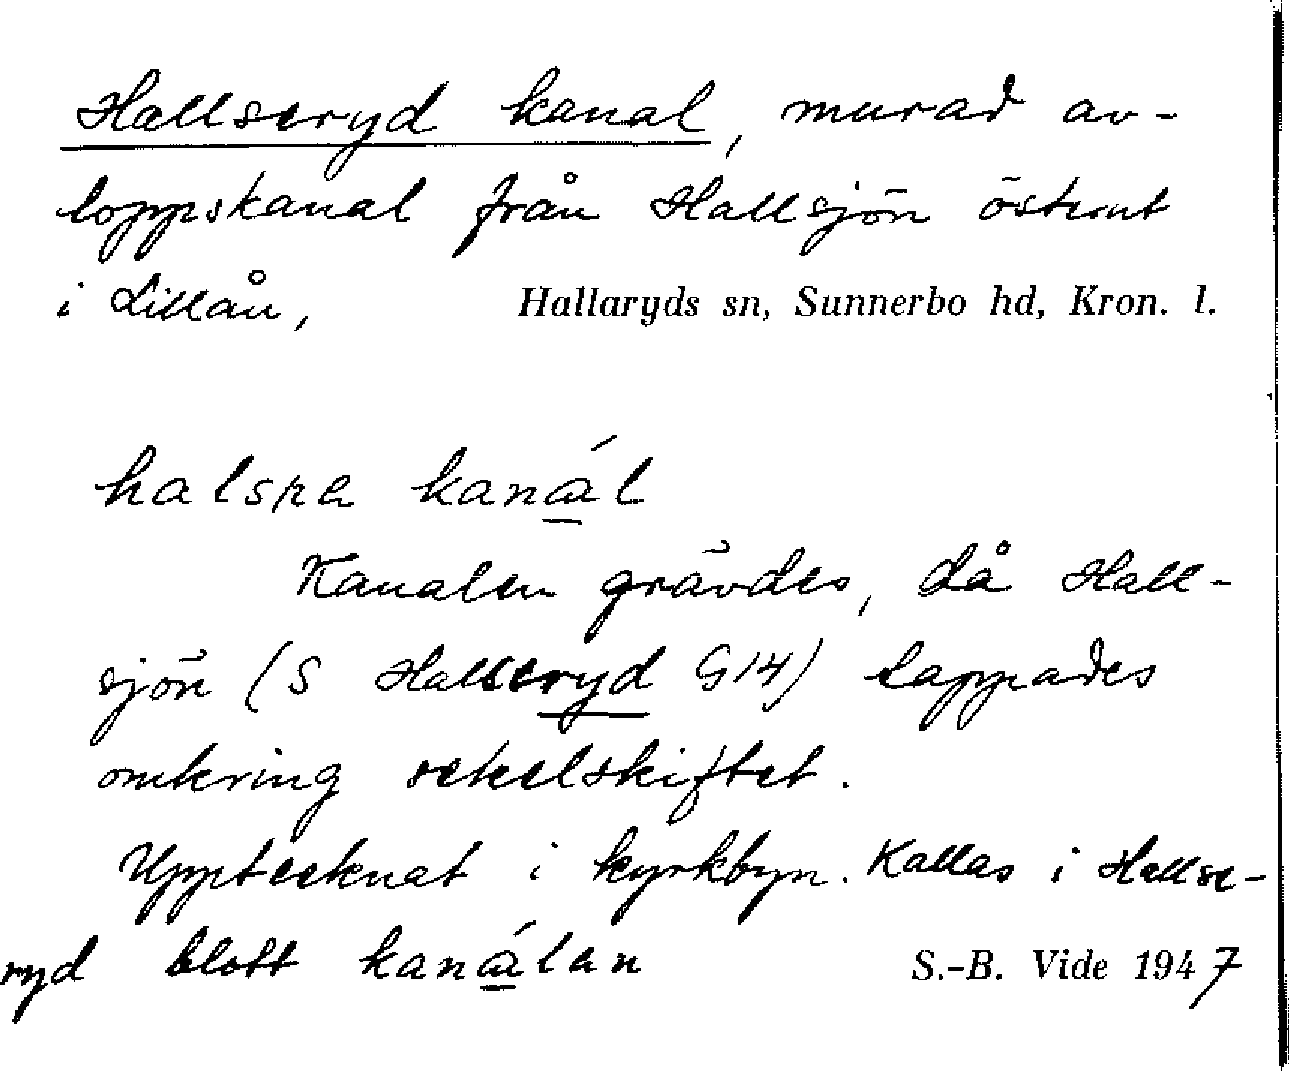 Hallseryd kanal, murad av-
loppskanal från Hallsjön österut
i Lillån, Hallaryds sn, Sunnerbo hd, Kron. l.
kanál
Kanalen grävdes, då Hall-
sjön (S Hallseryd G14) tappades
omkring sekelskiftet.
Upptecknat i kyrkbyn. Kallas i Hallse-
ryd blott kanálen
S.-B. Vide 1947